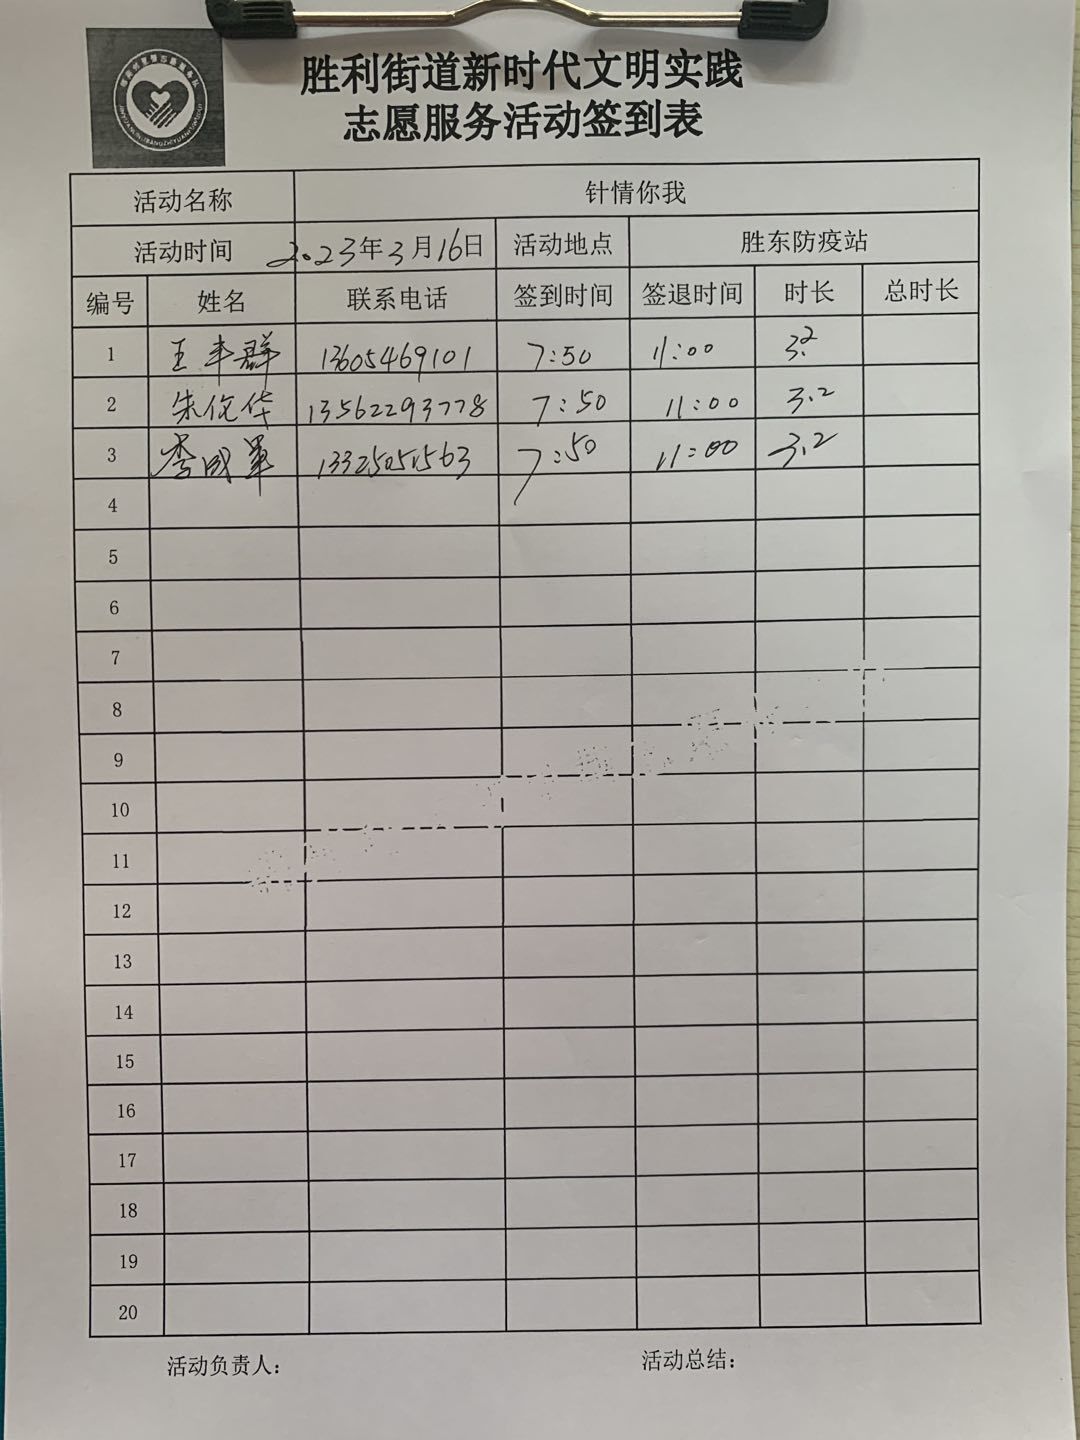 胜利街道新时代文明实践
志愿服务活动签到表
活动名称 针情你我
活动时间 2023年3月16日 活动地点 胜东防疫站
编号 姓名 联系电话 签到时间 签退时间 时长 总时长
1 王丰群 13605469101 7:50 11:00 3.2
2 朱伦华 13562293778 7:50 11:00 3.2
3 李成军 13325051563 7:50 11:00 3.2
4
5
6
7
8
9
10
11
12
13
14
15
16
17
18
19
20
活动负责人： 活动总结：